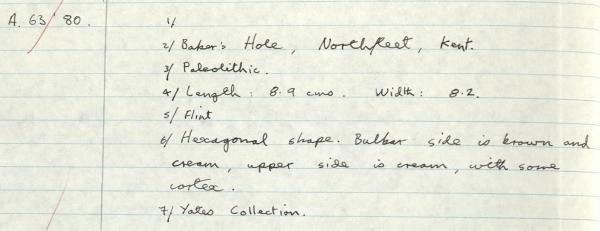 A. 63/80. 1/
2/ Baker's Hole, Northfleet, Kent.
3/ Paleolithic.
4/ Length: 8.9 cms. Width: 8.2.
5/ Flint
6/ Hexagonal shape. Bulbar side is brown and
cream, upper side is cream, with some
cortex.
7/ Yates Collection.